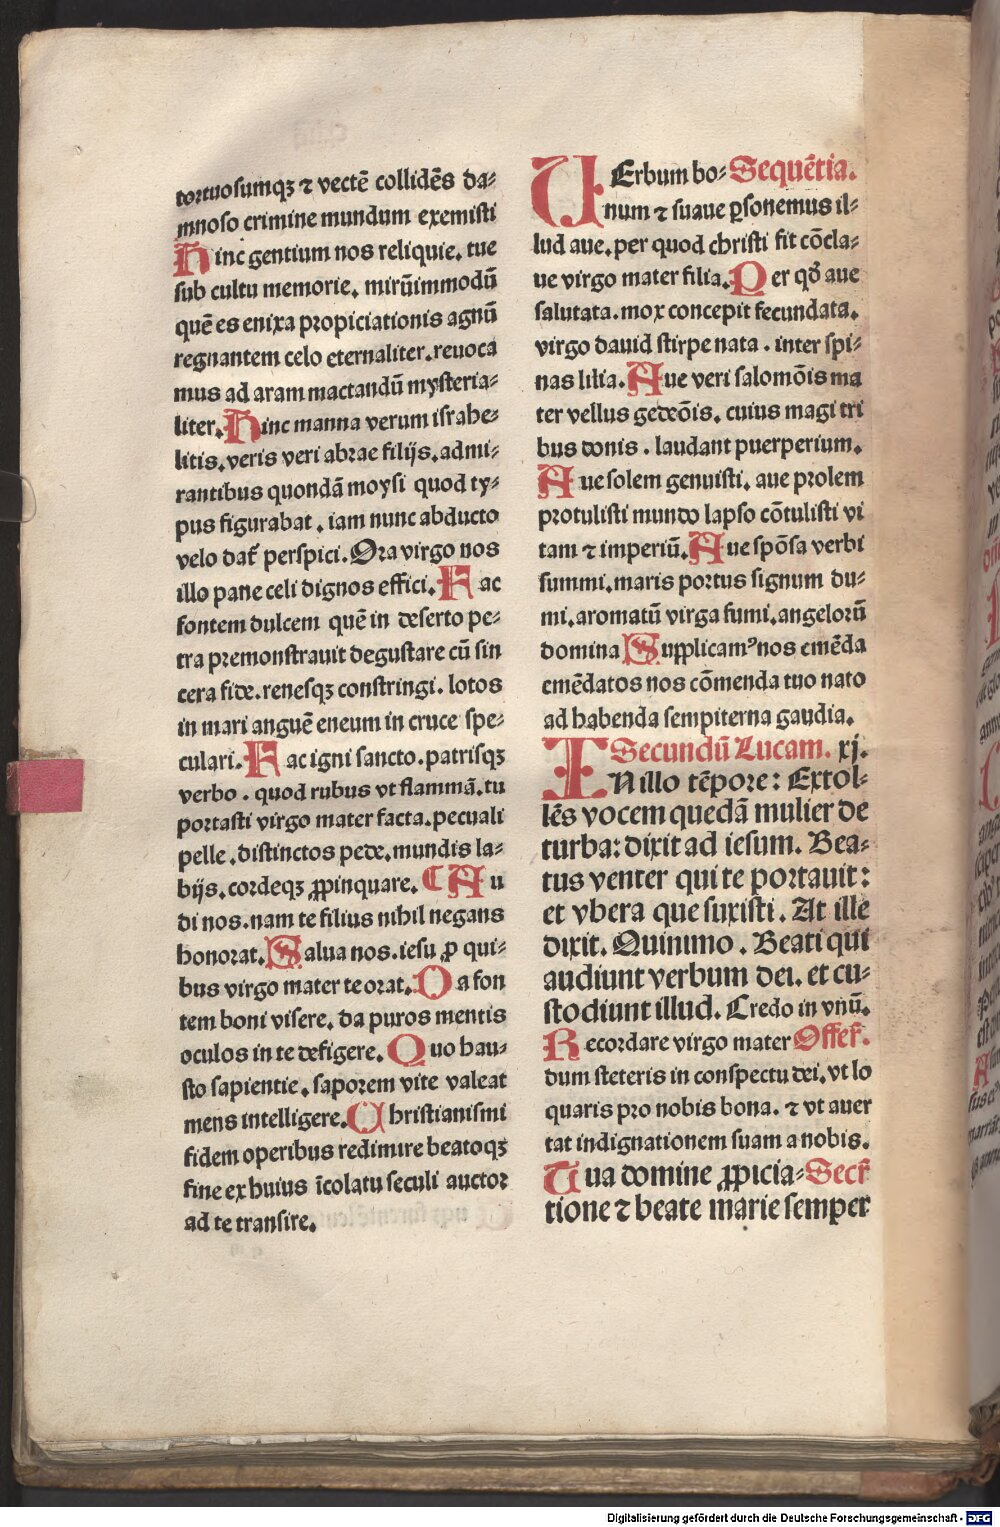 tortuosumqꝫ ⁊ vectē collidēs da⸗
mnoso crimine mundum exemisti
Hinc gentium nos reliquie. tue
sub cultu memorie. mirūimmodū
quē es enixa propiciationis agnū
regnantem celo eternaliter. reuoca
mus ad aram mactandū mysteria⸗
liter. Hinc manna verum israhe⸗
litis. veris veri abrae filijs. admi⸗
rantibus quondā moysi quod ty⸗
pus figurabat. iam nunc abducto
velo dat̄ perspici. Ora virgo nos
illo pane celi dignos effici. Fac
fontem dulcem quē in deserto pe⸗
tra premonstrauit degustare cū sin
cera fide. renesqꝫ constringi. lotos
in mari anguē eneum in cruce spe⸗
culari. Fac igni sancto. patrisqꝫ
verbo. quod rubus vt flammā. tu
portasti virgo mater facta. pecuali
pelle. distinctos pede. mundis la⸗
bijs. cordeqꝫ ꝓpinquare. ¶ Au
di nos. nam te filius nihil negans
honorat. Salua nos. iesu ꝓ qui⸗
bus virgo mater te orat. Da fon
tem boni visere. da puros mentis
oculos in te defigere. Quo hau⸗
sto sapientie. saporem vite valeat
mens intelligere. Christianismi
fidem operibus redimire beatoqꝫ
fine ex huius īcolatu seculi auctor
ad te transire.
VErbum bo⸗ Sequētia.
num ⁊ suaue ꝑsonemus il⸗
lud aue. per quod christi fit cōcla⸗
ue virgo mater filia. Per qd̄ aue
salutata. mox concepit fecundata.
virgo dauid stirpe nata. inter spi⸗
nas lilia. Aue veri salomōis ma
ter vellus gedeōis. cuius magi tri
bus donis. laudant puerperium.
Aue solem genuisti. aue prolem
protulisti mundo lapso cōtulisti vi
tam ⁊ imperiū. Aue spōsa verbi
summi. maris portus signum du⸗
mi. aromatū virga fumi. angelorū
domina Supplicamꝰ nos emēda
emēdatos nos cōmenda tuo nato
ad habenda sempiterna gaudia.
Secundū Lucam. xj.
IN illo tēpore: Extol⸗
lēs vocem quedā mulier de
turba: dixit ad iesum. Bea⸗
tus venter qui te portauit:
et vbera que suxisti. At ille
dixit. Quinimo. Beati qui
audiunt verbum dei. et cu⸗
stodiunt illud. Credo in vnū.
Recordare virgo mater Offer̄.
dum steteris in conspectu dei. vt lo
quaris pro nobis bona. ⁊ vt auer
tat indignationem suam a nobis.
Tua domine ꝓpicia⸗ Secr̄
tione ⁊ beate marie semper
Digitalisierung gefördert durch die Deutsche Forschungsgemeinschaft - DFG